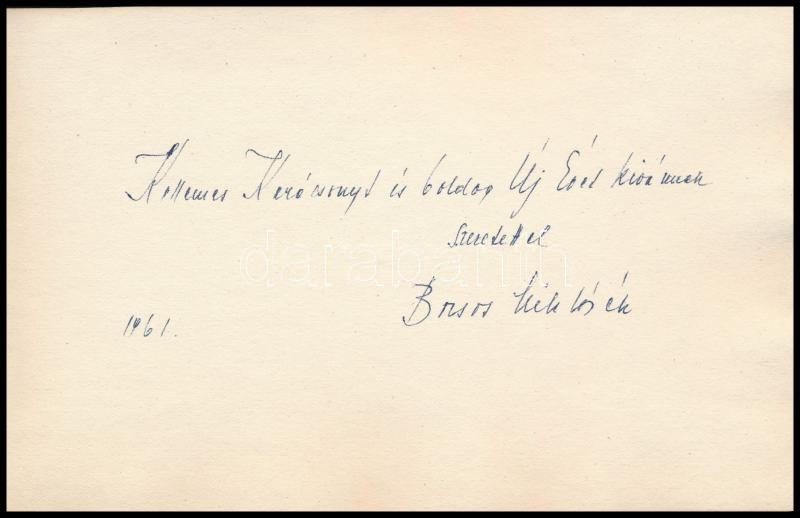 Kellemes Karácsonyt és boldog Új Évet kívánnak
szeretettel
darabanth
Borsos Miklósék
1961.